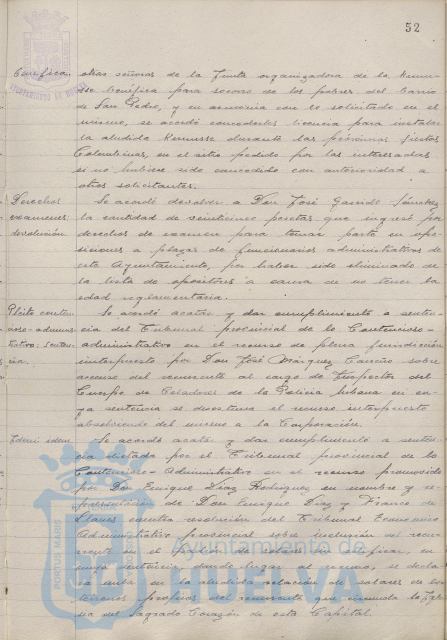 52
Benéfica
otras señoras de la Junta organizadora de la Kermes-
se benéfica para socorro de los pobres del barrio
de San Pedro, y en armonía con lo solicitado en el
mismo, se acordó concederles licencia para instalar
la aludida Kermesse durante las próximas fiestas
Colombinas, en el sitio pedido por las interesadas
si no hubiese sido concedido con anterioridad a
otros solicitantes.
Derechos
examenes:
devolución
Se acordó devolver a Don José Garrido Sánchez
la cantidad de veinticinco pesetas que ingresó por
derechos de examen para tomar parte en opo-
siciones a plazas de funcionarios administrativos de
este Ayuntamiento, por haber sido eliminado de
la lista de opositores a causa de no tener la
edad reglamentaria.
Pleito conten-
cioso-adminis-
trativo: Senten-
cia.
Se acordó acatar y dar cumplimiento a senten-
cia del Tribunal provincial de lo Contencioso-
administrativo en el recurso de plena jurisdicción
interpuesto por Don José Márquez sobre
ascenso del recurrente al cargo de Inspector del
Cuerpo de Celadores de la Policía Urbana en cu-
ya sentencia se desestima el recurso interpuesto
absolviendo del mismo a la Corporación.
Idem idem.
Se acordó acatar y dar cumplimiento a senten-
cia dictada por el Tribunal provincial de lo
Contencioso-Administrativo en el recurso promovido
por Don Enrique Díaz Rodríguez en nombre y re-
presentación de Don Enrique Díaz y Franco de
Llanos contra resolución del Tribunal Económico
Administrativo provincial sobre inclusión del recu-
rrente en el padrón de solares sin edificar, en
cuya sentencia dando lugar al recurso, se decla-
ra nula en la aludida relación de solares de los
terrenos propios del recurrente que circunda la Igle-
sia del Sagrado Corazón de esta Capital.
Ayuntamiento de
HUELVA
PORTUS MARIS